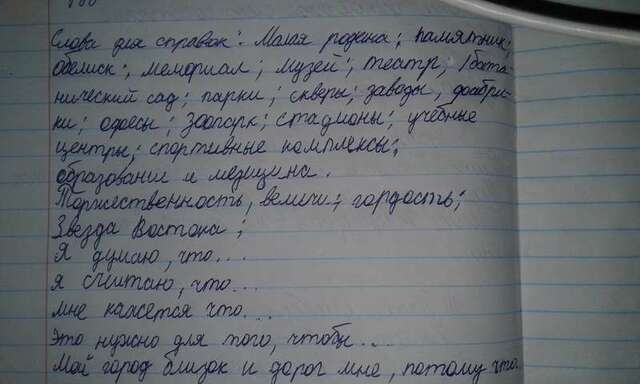 Слова для справок: Малая родина; памятник;
обелиск; мемориал; музей; театр; /бота-
нический сад; парки; скверы; заводы, фабри-
ки; офисы; зоопарк; стадионы; учебные
центры; спортивные комплексы;
образование и медицина.
Торжественность, величие; гордость;
Звезда Востока;
Я думаю, что...
я считаю, что...
мне кажется что...
Это нужно для того, чтобы...
Мой город близок и дорог мне, потому что...